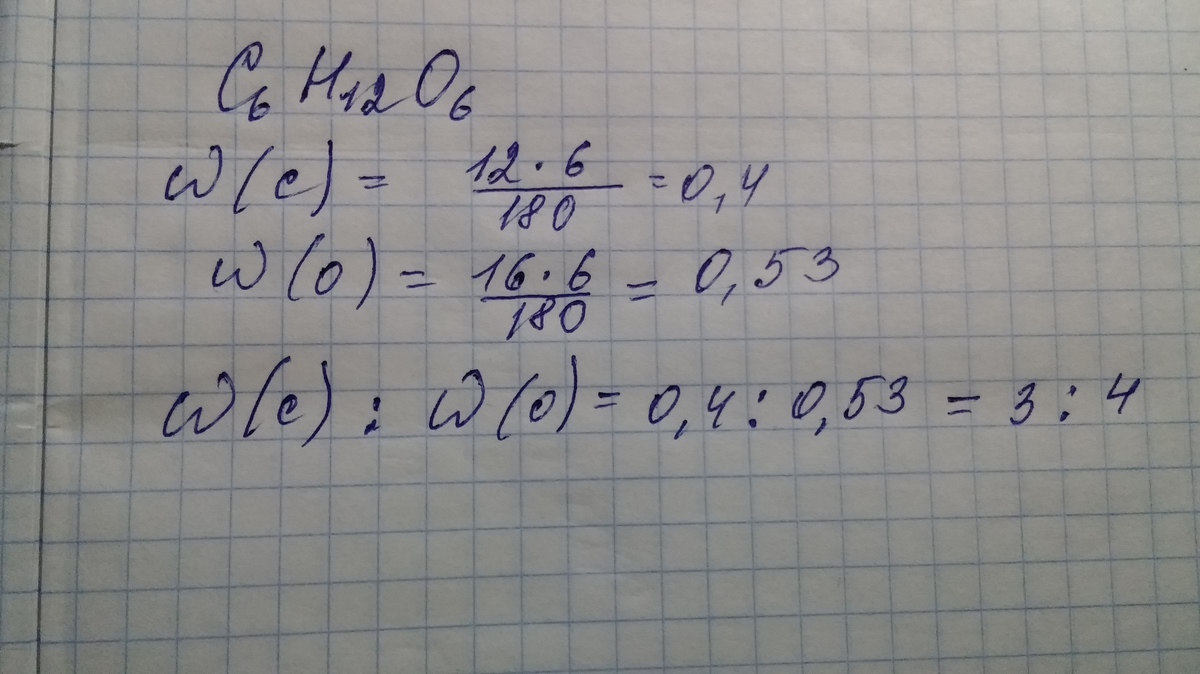 C₆H₁₂O₆
W(c) = 12·6/180 = 0,4
W(o) = 16·6/180 = 0,53
W(c) : W(o) = 0,4 : 0,53 = 3 : 4